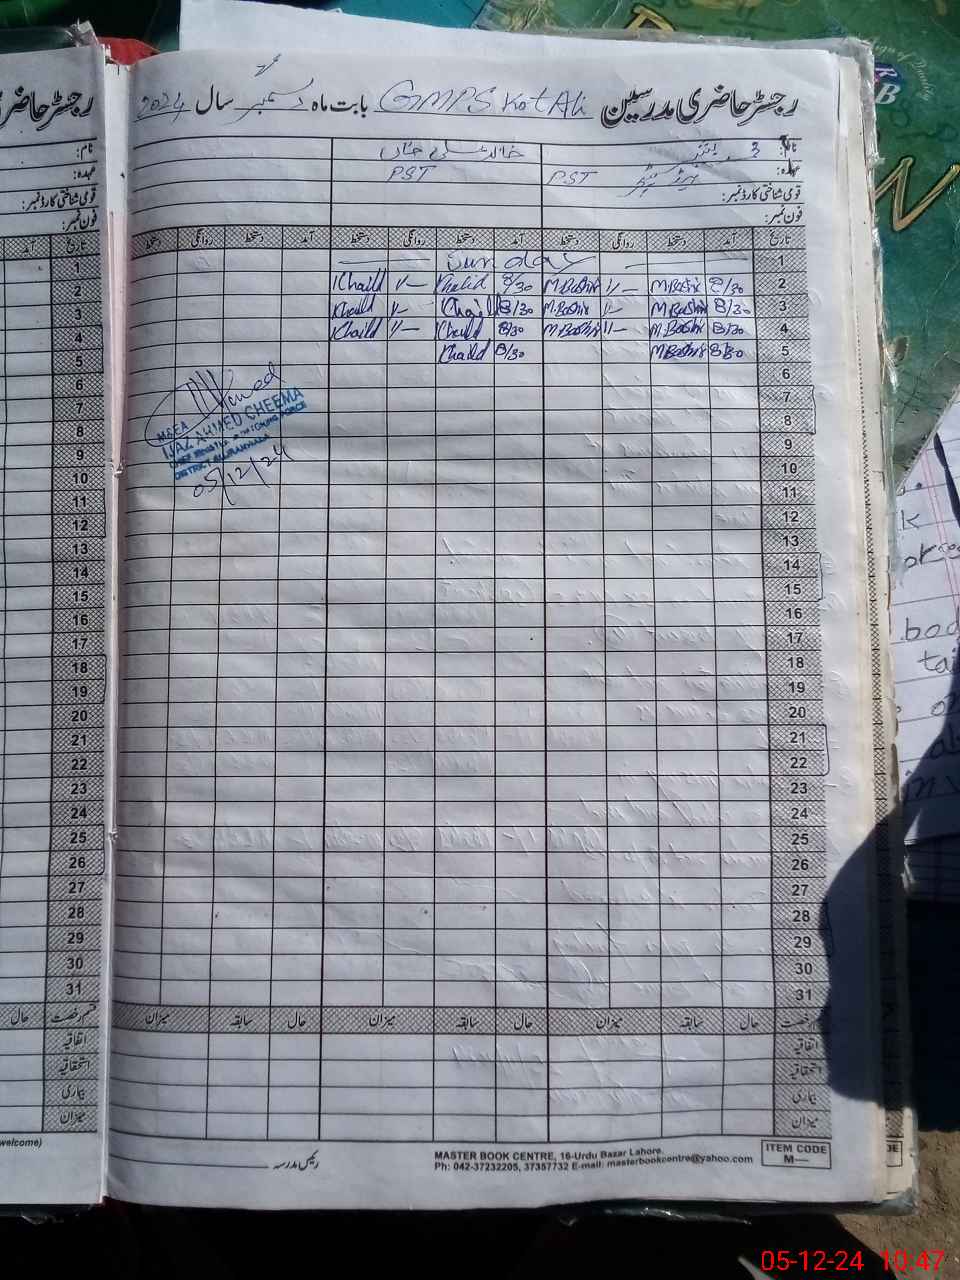 رجسٹر حاضری مدرسین GMPS Kot Ali بابت ماہ دسمبر سال 2024
نام: محمد بشیر خالد علی خاں
عہدہ: ہیڈ ٹیچر PST PST
قومی شناختی کارڈ نمبر:
فون نمبر:
تاریخ آمد دستخط روانگی دستخط آمد دستخط روانگی دستخط آمد دستخط روانگی دستخط
1 Sunday
2 8/30 M.Bashir 1/- M.Bashir 8/30 Khalid 1/- Khalid
3 8/30 M.Bashir 1/- M.Bashir 8/30 Khalid 1/- Khalid
4 8/30 M.Bashir 1/- M.Bashir 8/30 Khalid 1/- Khalid
5 8/30 M.Bashir 8/30 Khalid
6
7
8
9
10
11
12
13
14
15
16
17
18
19
20
21
22
23
24
25
26
27
28
29
30
31
MGEA
IJAZ AHMED CHEEMA
CHIEF MINISTER MONITORING FORCE
05/12/24
قسم رخصت حال سابقہ میزان حال سابقہ میزان حال سابقہ میزان
اتفاقیہ
استحقاقیہ
بیماری
میزان
رئیس مدرسہ
MASTER BOOK CENTRE, 16-Urdu Bazar Lahore.
Ph: 042-37232205, 37357732 E-mail: masterbookcentre@yahoo.com
ITEM CODE
M—
welcome)
05-12-24 10:47